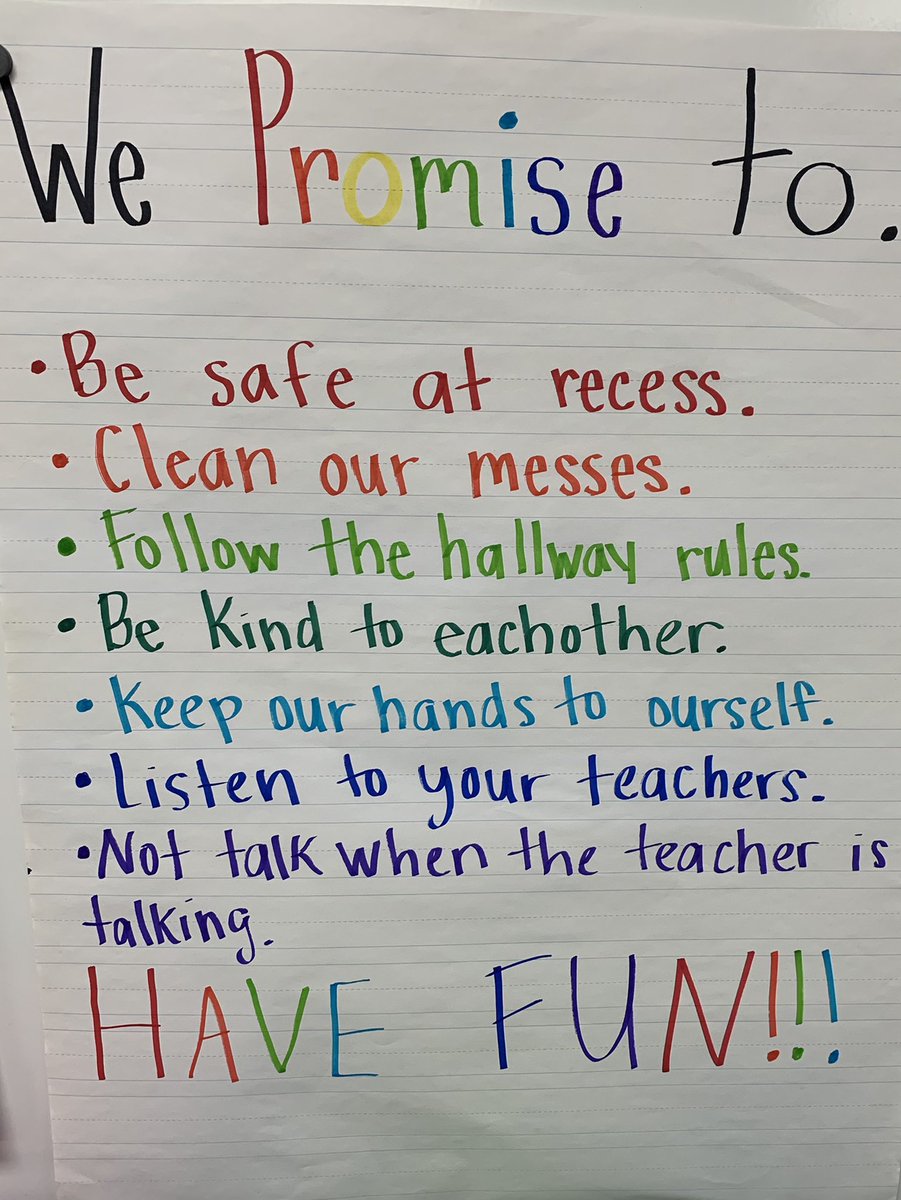 We Promise to.
• Be safe at recess.
• Clean our messes.
• Follow the hallway rules.
• Be Kind to eachother.
• Keep our hands to ourself.
• Listen to your teachers.
• Not talk when the teacher is
talking.
HAVE FUN!!!